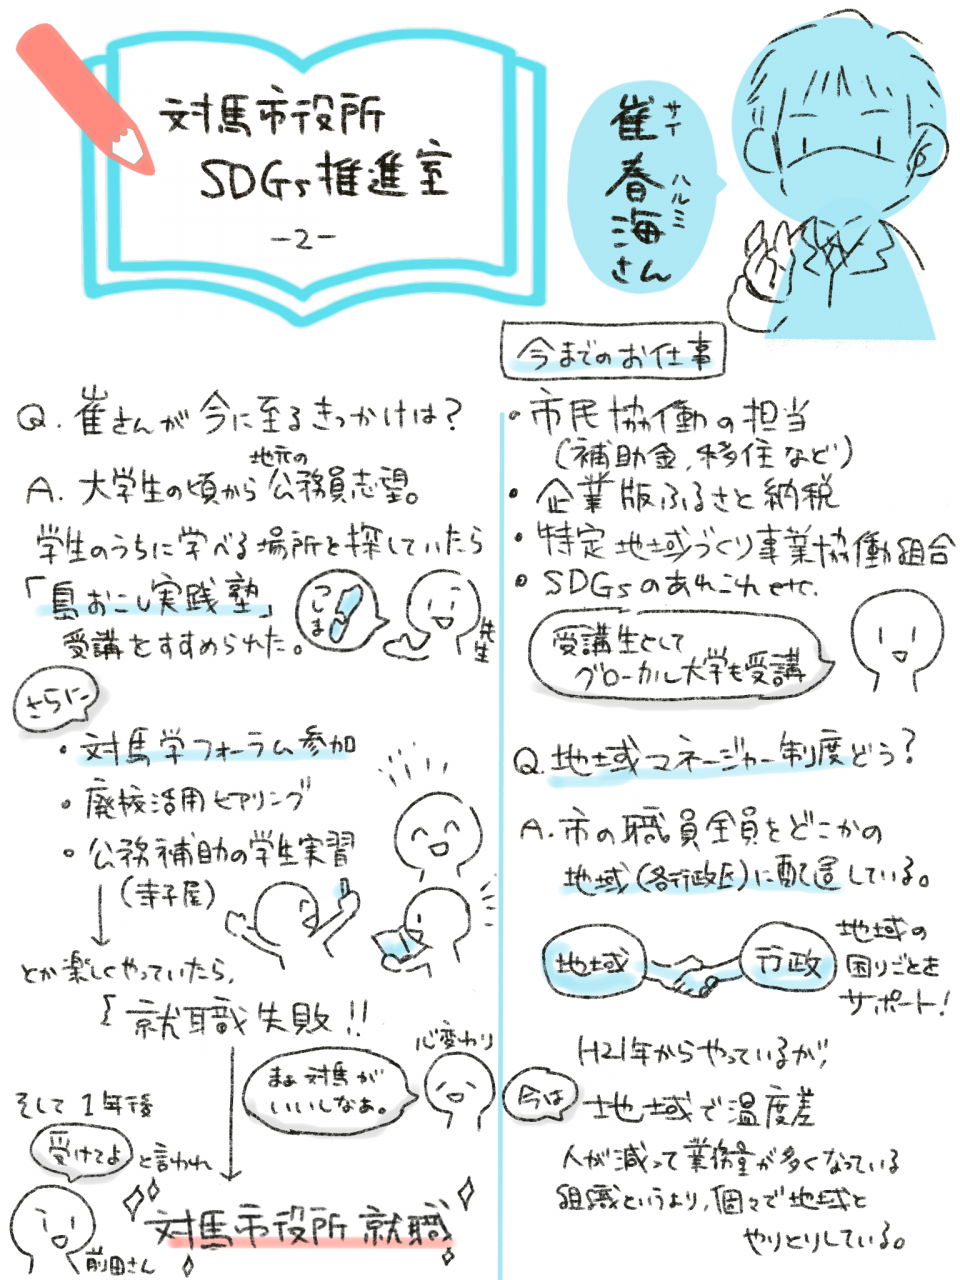 対馬市役所
SDGs推進室
-2-
崔 春海さん
サイ ハルミ
Q. 崔さんが今に至るきっかけは?
A. 大学生の頃から地元の公務員志望。
学生のうちに学べる場所を探していたら
「島おこし実践塾」
受講をすすめられた。
つしま
先生
さらに
・対馬学フォーラム参加
・廃校活用ヒアリング
・公務補助の学生実習
(寺子屋)
とか楽しくやっていたら、
就職失敗!!
心変わり
まぁ対馬が
いいしなぁ。
そして1年後
受けてよ と言われ
前田さん
対馬市役所就職
今までのお仕事
・市民協働の担当
(補助金、移住など)
・企業版ふるさと納税
・特定地域づくり事業協働組合
・SDGsのあれこれetc.
受講生として
グローカル大学も受講
Q. 地域マネージャー制度どう?
A. 市の職員全員をどこかの
地域(各行政区)に配置している。
地域 市政
地域の
困りごとを
サポート!
H21年からやっているが、
今は 地域で温度差
人が減って業務量が多くなっている
組織というより、個々で地域と
やりとりしている。